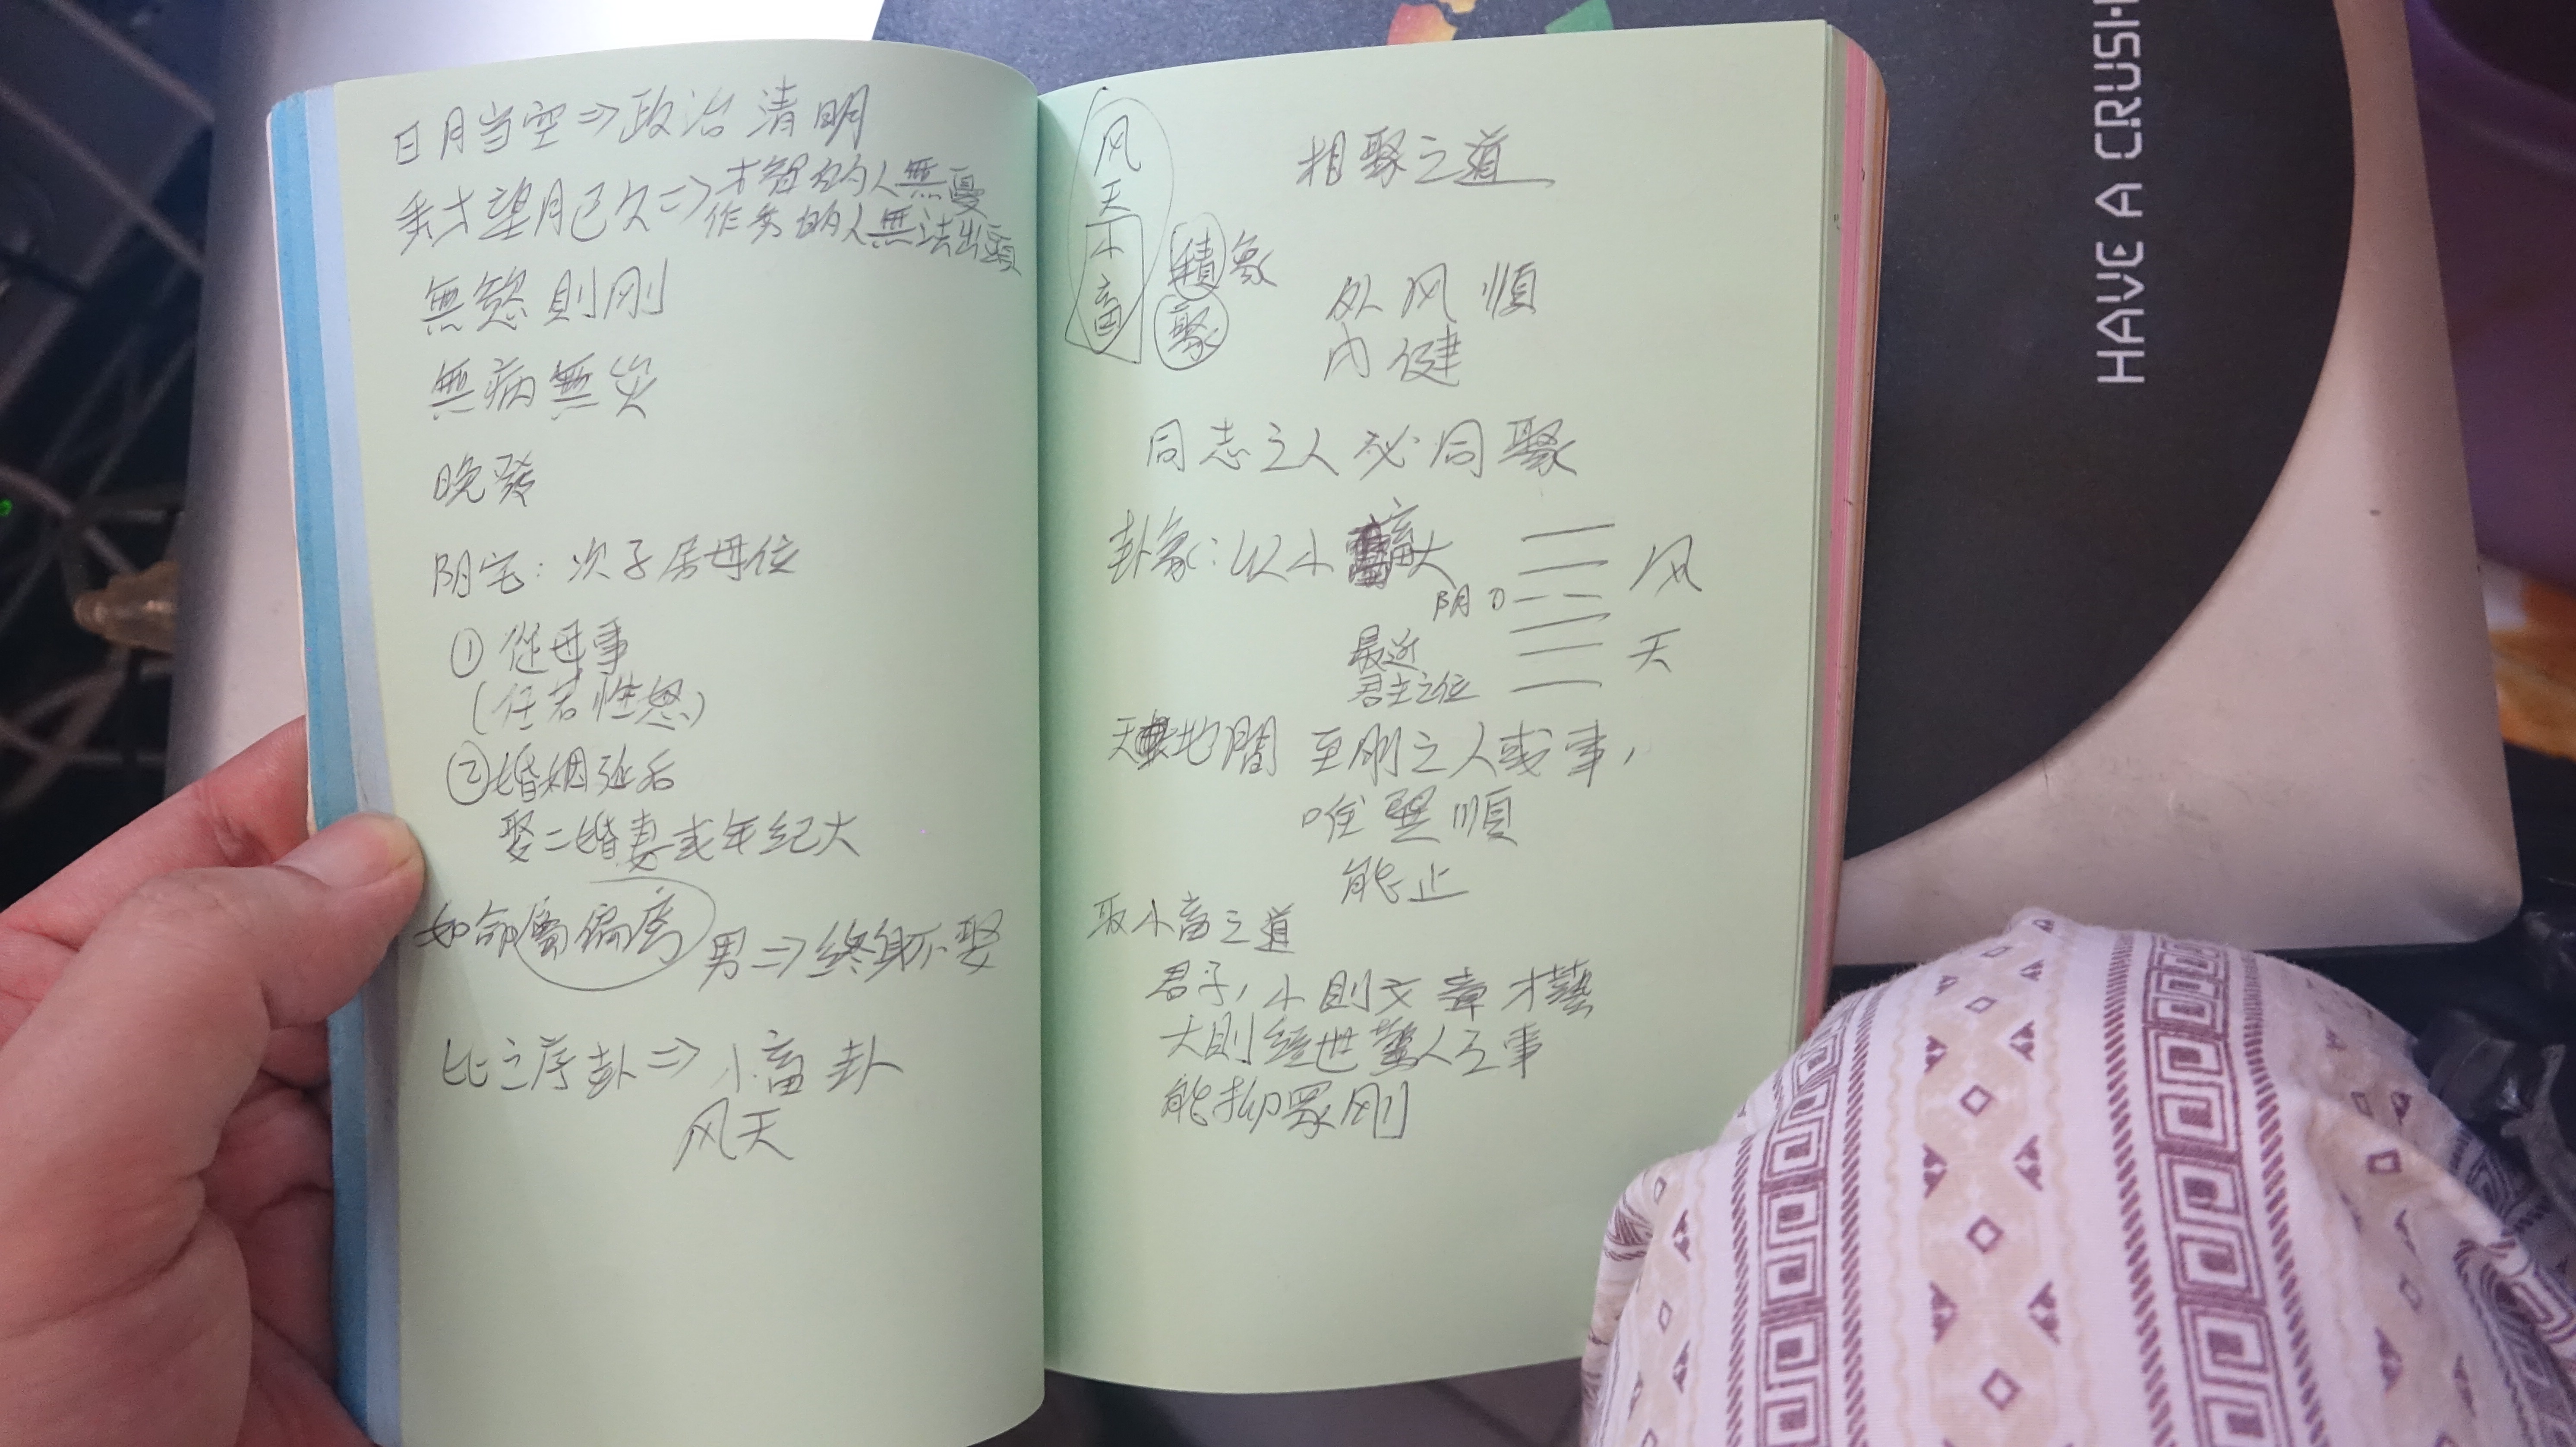 日月当空⇒政治清明
秀才望月已久⇒才智的人無憂
作秀的人無法出頭
無慾則刚
無病無災
晚發
阴宅：次子居母位
① 從母事
(任若性怒)
② 婚姻延后
娶二婚妻或年纪大
如命屬偏房 男⇒終身不娶
比之序卦⇒小畜卦
风天
风天小畜
相聚之道
積象
聚
风順
内健
同志之人必同聚
卦象：以小畜大
阴
风
最近
君主之位
天
天地間 至刚之人或事，
唯巽順
能止
取小畜之道
君子，小則文章才藝
大則經世驚人之事
能抑眾刚
HAVE A CRUSH